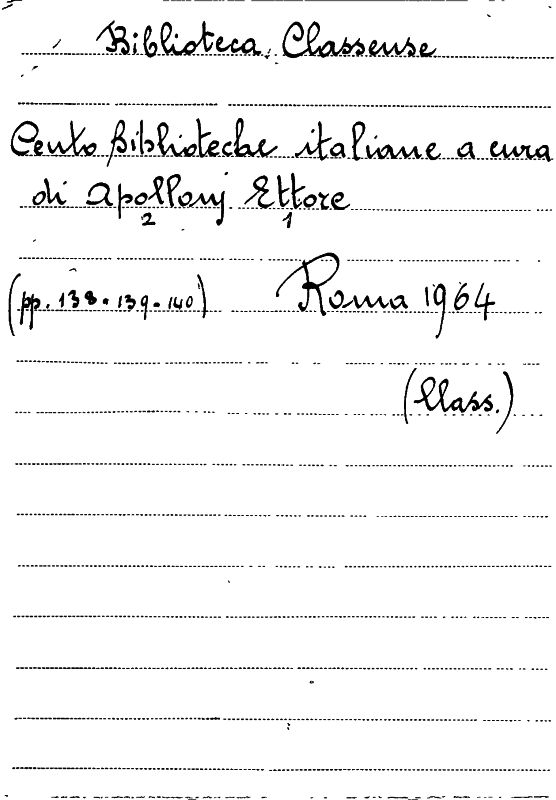 Biblioteca Classense
Cento biblioteche italiane a cura
di Apollonj Ettore
2 1
(pp. 138-139-140) Roma 1964
(Class.)